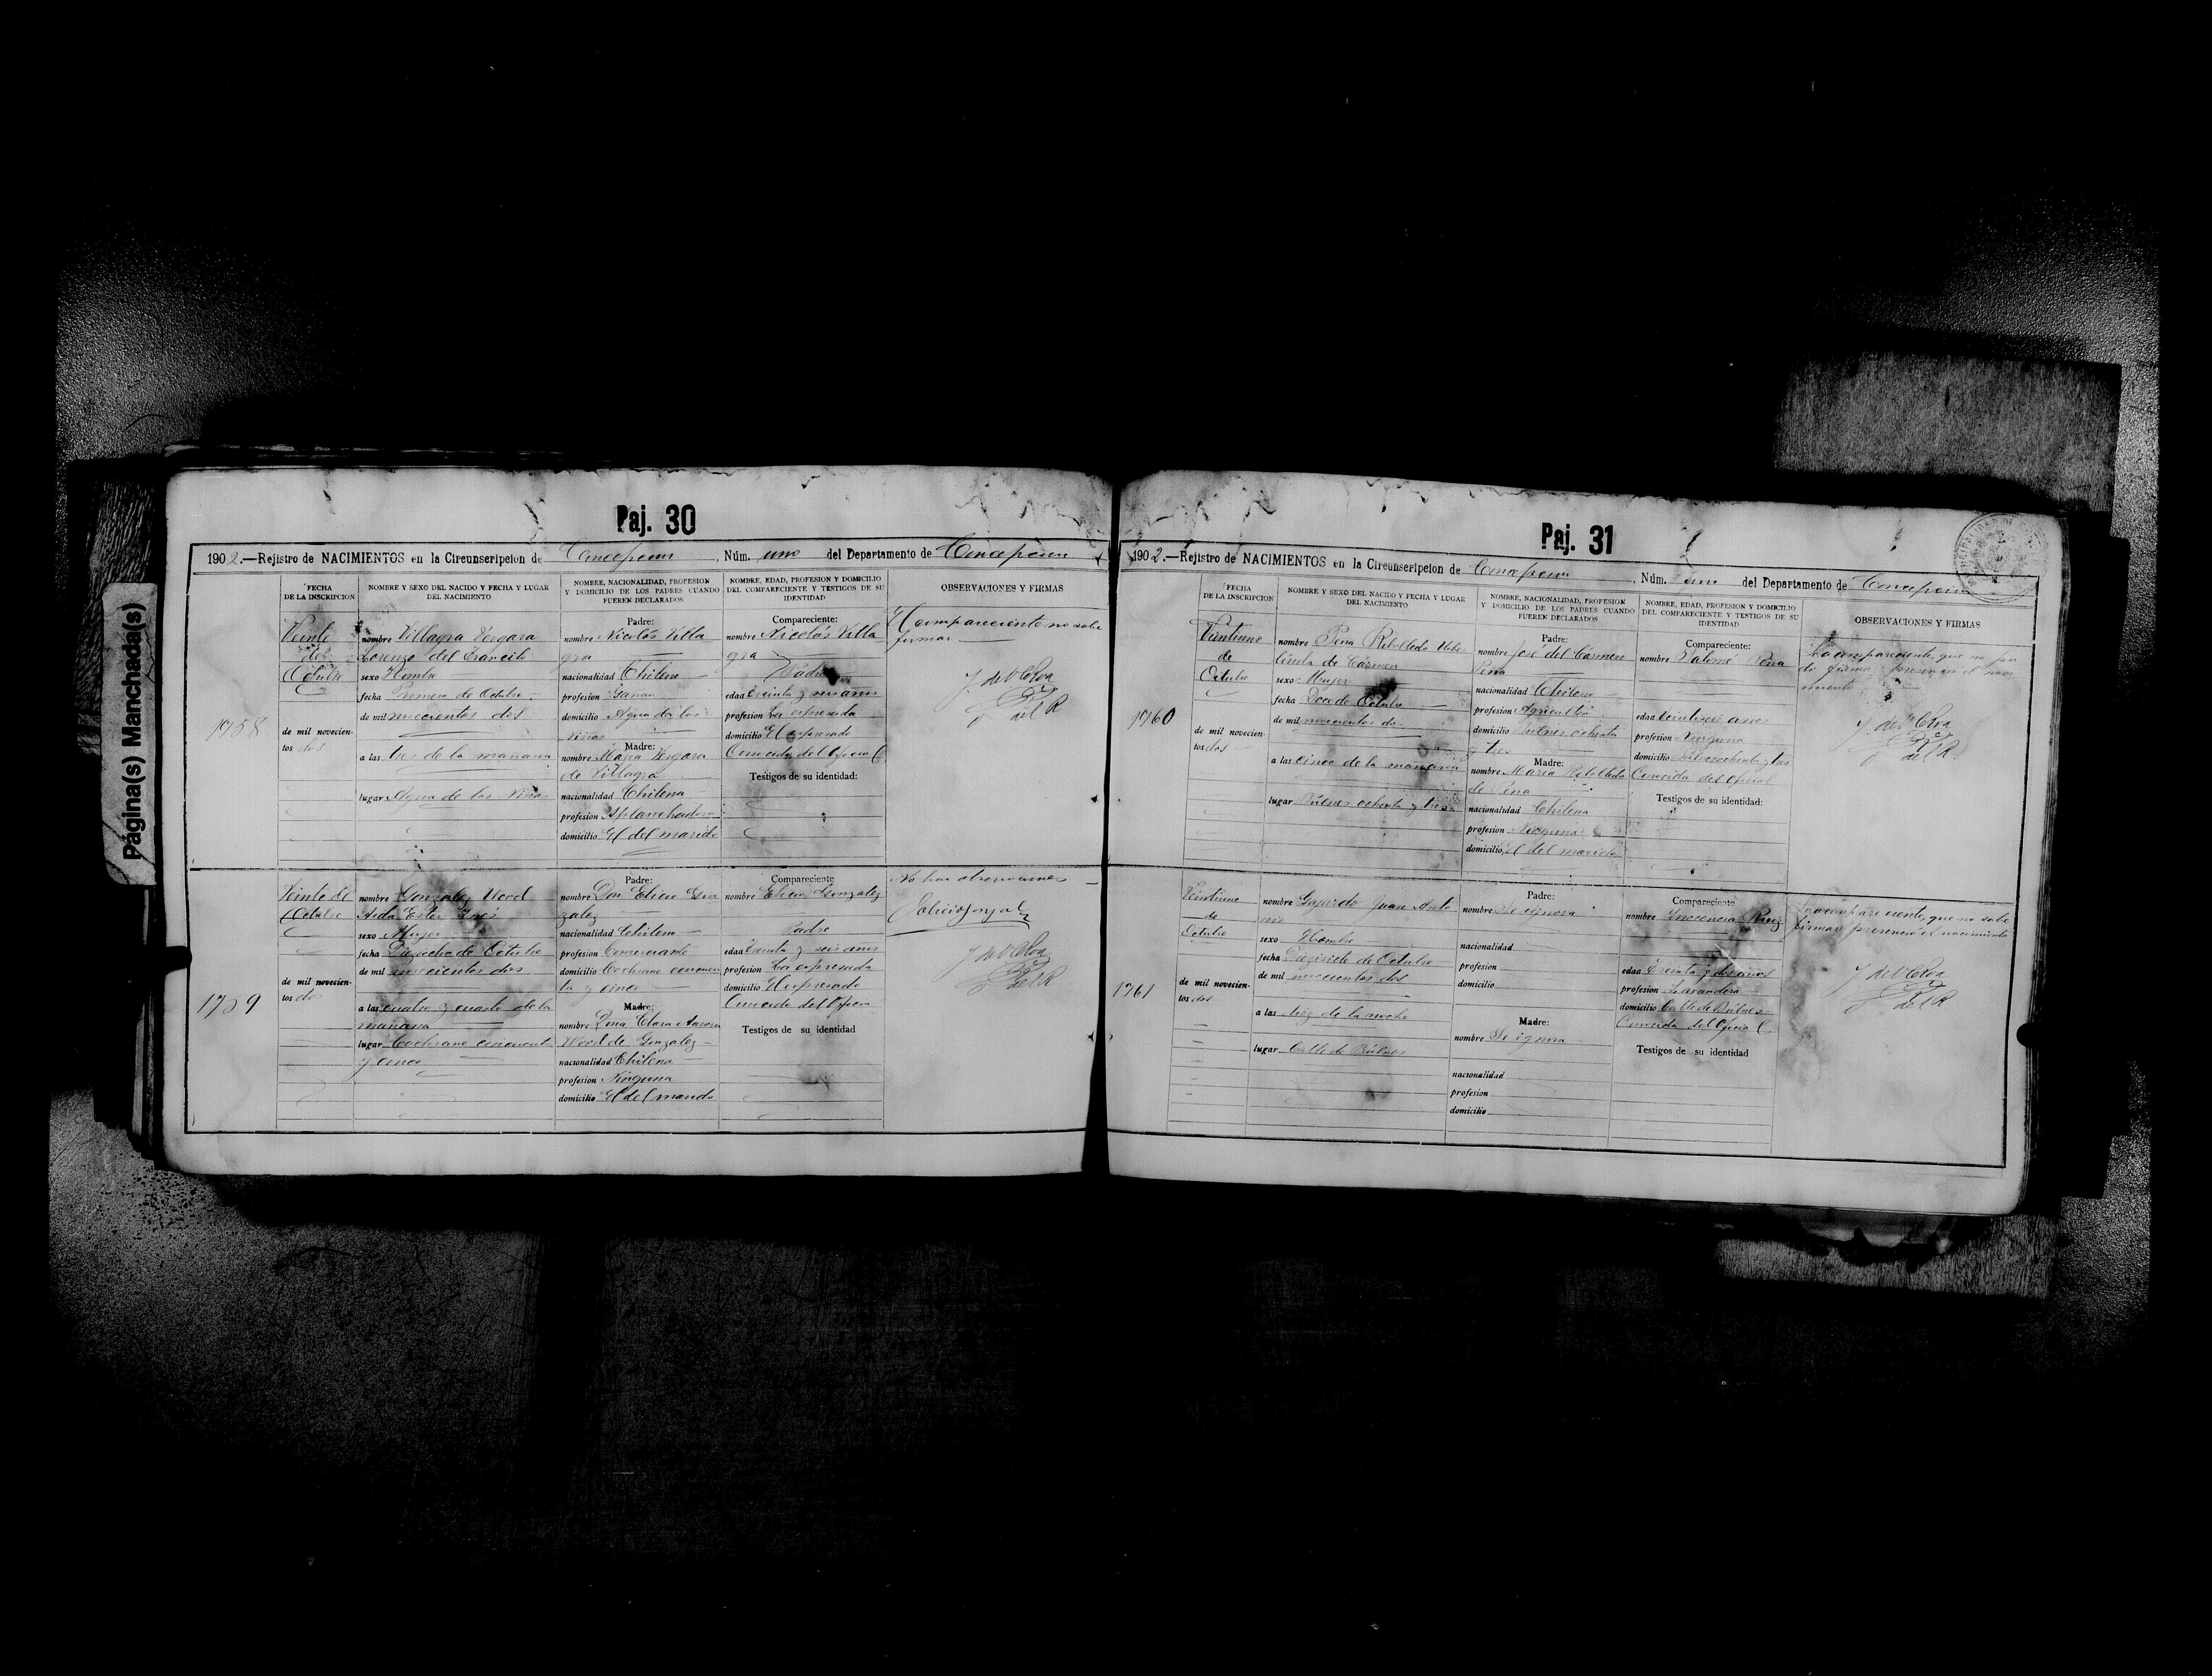 Página(s) Manchada(s)
Paj. 30
1902.—Rejistro de NACIMIENTOS en la Circunscripcion de Concepcion, Núm. uno del Departamento de Concepcion
FECHA DE LA INSCRIPCION
NOMBRE Y SEXO DEL NACIDO Y FECHA Y LUGAR DEL NACIMIENTO
NOMBRE, NACIONALIDAD, PROFESION Y DOMICILIO DE LOS PADRES CUANDO FUEREN DECLARADOS
NOMBRE, EDAD, PROFESION Y DOMICILIO DEL COMPARECIENTE Y TESTIGOS DE SU IDENTIDAD
OBSERVACIONES Y FIRMAS
1758
Veinte
de
Octubre
de mil novecien-
tos dos
nombre Villagra Vergara
Lorenzo del Tránsito
sexo Hombre
fecha Primero de Octubre
de mil novecientos dos
a las tres de la mañana
lugar Agua de las Niñas
Padre:
nombre Nicolás Villa
gra
nacionalidad Chileno
profesion Gañan
domicilio Agua de las
Niñas
Madre:
nombre Maria Vergara
de Villagra
nacionalidad Chilena
profesion Aplanchadora
domicilio El del marido
Compareciente:
nombre Nicolás Villa
gra
Padre
edad treinta y seis años
profesion La espresada
domicilio El espresado
Conocido del Oficial C
Testigos de su identidad:
El compareciente no sabe
firmar
1759
Veinte de
Octubre
de mil novecien-
tos dos
nombre Gonzalez Wood
Aida Ester Inés
sexo Mujer
fecha Dieziocho de Octubre
de mil novecientos dos
a las cuatro y cuarto de la
mañana
lugar Cochrane cincuent
y cinco
Padre:
nombre Don Elicio Gon
zalez
nacionalidad Chileno
profesion Comerciante
domicilio Cochrane cincuen
ta y cinco
Madre:
nombre Doña Clara Aurora
Wood de Gonzalez
nacionalidad Chilena
profesion Ninguna
domicilio El del marido
Compareciente
nombre Elicio Gonzalez
Padre
edad treinta y seis años
profesion La espresada
domicilio El espresado
Conocido del Oficial
Testigos de su identidad
No hai observaciones
Paj. 31
1902.—Rejistro de NACIMIENTOS en la Circunscripcion de Concepcion, Núm. uno del Departamento de Concepcion
FECHA DE LA INSCRIPCION
NOMBRE Y SEXO DEL NACIDO Y FECHA Y LUGAR DEL NACIMIENTO
NOMBRE, NACIONALIDAD, PROFESION Y DOMICILIO DE LOS PADRES CUANDO FUEREN DECLARADOS
NOMBRE, EDAD, PROFESION Y DOMICILIO DEL COMPARECIENTE Y TESTIGOS DE SU IDENTIDAD
OBSERVACIONES Y FIRMAS
1760
Veintiuno
de
Octubre
de mil novecien-
tos dos
nombre Peña Rebolledo
de Cármen
sexo Mujer
fecha Doce de Octubre
de mil novecientos dos
a las cinco de la mañana
lugar Búlnes ochenta y tres
Padre:
nombre José del Cármen
Peña
nacionalidad Chileno
profesion Agricultor
domicilio Búlnes ochenta
y tres
Madre:
nombre Maria Rebolledo
de Peña
nacionalidad Chilena
profesion Ninguna
domicilio El del marido
Compareciente:
nombre Salomé Peña
edad veintiseis años
profesion Ninguna
domicilio Búlnes ochenta y tres
Conocida del Oficial
Testigos de su identidad:
La compareciente, que no
firma presenció el naci
miento
1761
Veintiuno
de
Octubre
de mil novecien-
tos dos
nombre Gajardo Juan Anto
nio
sexo Hombre
fecha Diezisiete de Octubre
de mil novecientos dos
a las diez de la noche
lugar Calle de Búlnes
Padre:
nombre Se ignora
nacionalidad
profesion
domicilio
Madre:
nombre Se ignora
nacionalidad
profesion
domicilio
Compareciente
nombre Inocencia Ruiz
edad treinta y dos años
profesion Lavandera
domicilio Calle de Búlnes
Conocida del Oficial C
Testigos de su identidad
La compareciente, que no sabe
firmar presenció el nacimiento